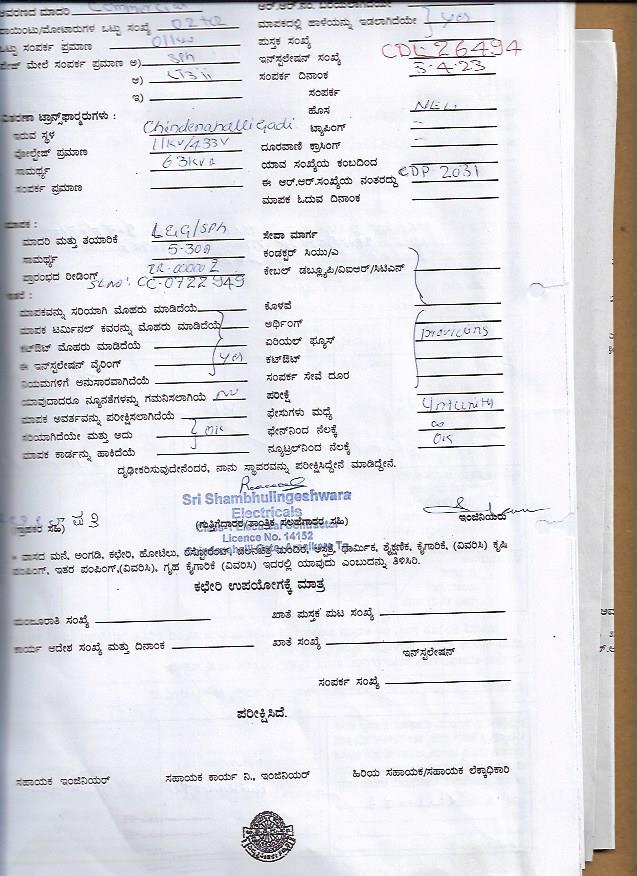 ಆವರಣದ ಮಾದರಿ Commercial
ಆರ್.ಆರ್.ನಂ. ಬರೆಯಲಾಗಿದೆಯೇ
ಪಾಯಿಂಟು/ಮೋಟಾರುಗಳ ಒಟ್ಟು ಸಂಖ್ಯೆ
ಮಾಪಕದಲ್ಲಿ ಹಾಳೆಯನ್ನು ಇಡಲಾಗಿದೆಯೇ yes
ಒಟ್ಟು ಸಂಪರ್ಕ ಪ್ರಮಾಣ
ಪುಸ್ತಕ ಸಂಖ್ಯೆ
ಮೇಲೆ ಸಂಪರ್ಕ ಪ್ರಮಾಣ ಅ) 3ph
ಇನ್‌ಸ್ಟಲೇಷನ್ ಸಂಖ್ಯೆ CDL-26494
ಆ) LT3ii
ಸಂಪರ್ಕ ದಿನಾಂಕ 3-4-23
ಇ)
ಸಂಪರ್ಕ
ವಿತರಣಾ ಟ್ರಾನ್ಸ್‌ಫಾರ್ಮರುಗಳು :
ಹೊಸ NEW
ಇರುವ ಸ್ಥಳ Chindenahalli Gadi
ಟ್ಯಾಪಿಂಗ್ -
ವೋಲ್ಟೇಜ್ ಪ್ರಮಾಣ 11KV/433V
ದೂರವಾಣಿ ಕ್ರಾಸಿಂಗ್ -
ಸಾಮರ್ಥ್ಯ 63KVA
ಯಾವ ಸಂಖ್ಯೆಯ ಕಂಬದಿಂದ
ಸಂಪರ್ಕ ಪ್ರಮಾಣ
ಈ ಆರ್.ಆರ್.ಸಂಖ್ಯೆಯ ನಂತರದ್ದು CDP-2031
ಮಾಪಕ ಓದುವ ದಿನಾಂಕ
ಮಾಪಕ :
ಸೇವಾ ಮಾರ್ಗ
ಮಾದರಿ ಮತ್ತು ತಯಾರಿಕೆ L&G/3ph
ಕಂಡಕ್ಟರ್ ಸಿಯು/ಎ
ಸಾಮರ್ಥ್ಯ 5-30A
ಕೇಬಲ್ ಡಬ್ಲ್ಯೂಪಿ/ವಿಐಆರ್/ಸಿಟಿಎನ್
ಪ್ರಾರಂಭದ ರೀಡಿಂಗ್ IR-00000 2
SL no: CC-0722949
ಇತರೆ :
ಕೊಳವೆ
ಮಾಪಕವನ್ನು ಸರಿಯಾಗಿ ಮೊಹರು ಮಾಡಿದೆಯೆ
ಅರ್ಥಿಂಗ್
ಮಾಪಕ ಟರ್ಮಿನಲ್ ಕವರನ್ನು ಮೊಹರು ಮಾಡಿದೆಯೆ
ಏರಿಯಲ್ ಫ್ಯೂಸ್
ಕಟ್‌ಔಟ್ ಮೊಹರು ಮಾಡಿದೆಯೆ
ಈ ಇನ್‌ಸ್ಟಲೇಷನ್ ವೈರಿಂಗ್ yes
ಕಟ್‌ಔಟ್
ನಿಯಮಗಳಿಗೆ ಅನುಸಾರವಾಗಿದೆಯೆ
ಸಂಪರ್ಕ ಸೇವೆ ದೂರ
ಯಾವುದಾದರೂ ನ್ಯೂನತೆಗಳನ್ನು ಗಮನಿಸಲಾಗಿಯೆ NO
ಪರೀಕ್ಷೆ
ಮಾಪಕ ಅವರ್ತವನ್ನು ಪರೀಕ್ಷಿಸಲಾಗಿದೆಯೆ
ಫೇಸುಗಳು ಮಧ್ಯೆ
ಸರಿಯಾಗಿದೆಯೇ ಮತ್ತು ಅದು OK
ಫೇಸ್‌ನಿಂದ ನೆಲಕ್ಕೆ ∞
ಮಾಪಕ ಕಾರ್ಡನ್ನು ಹಾಕಿದೆಯೆ
ನ್ಯೂಟ್ರಲ್‌ನಿಂದ ನೆಲಕ್ಕೆ OK
ದೃಢೀಕರಿಸುವುದೇನೆಂದರೆ, ನಾನು ಸ್ಥಾವರವನ್ನು ಪರೀಕ್ಷಿಸಿದ್ದೇನೆ ಮಾಡಿದ್ದೇನೆ.
Sri Shambhulingeshwara
Electricals
(ಗ್ರಾಹಕರ ಸಹಿ)
(ಗುತ್ತಿಗೆದಾರರ/ತಾಂತ್ರಿಕ ಸಲಹೆಗಾರರ ಸಹಿ)
ಇಂಜಿನಿಯರು
Licence No. 14152
* ವಾಸದ ಮನೆ, ಅಂಗಡಿ, ಕಛೇರಿ, ಹೋಟೆಲು, ರೆಸ್ಟೋರೆಂಟ್, ಚಲನಚಿತ್ರ ಮಂದಿರ, ಆಸ್ಪತ್ರೆ, ಧಾರ್ಮಿಕ, ಶೈಕ್ಷಣಿಕ, ಕೈಗಾರಿಕೆ, (ವಿವರಿಸಿ) ಕೃಷಿ
ಪಂಪಿಂಗ್, ಇತರ ಪಂಪಿಂಗ್,(ವಿವರಿಸಿ), ಗೃಹ ಕೈಗಾರಿಕೆ (ವಿವರಿಸಿ) ಇದರಲ್ಲಿ ಯಾವುದು ಎಂಬುದನ್ನು ತಿಳಿಸಿರಿ.
ಕಛೇರಿ ಉಪಯೋಗಕ್ಕೆ ಮಾತ್ರ
ಮಂಜೂರಾತಿ ಸಂಖ್ಯೆ
ಖಾತೆ ಪುಸ್ತಕ ಪುಟ ಸಂಖ್ಯೆ
ಕಾರ್ಯ ಆದೇಶ ಸಂಖ್ಯೆ ಮತ್ತು ದಿನಾಂಕ
ಖಾತೆ ಸಂಖ್ಯೆ
ಇನ್‌ಸ್ಟಲೇಷನ್
ಸಂಪರ್ಕ ಸಂಖ್ಯೆ
ಪರೀಕ್ಷಿಸಿದೆ.
ಸಹಾಯಕ ಇಂಜಿನಿಯರ್
ಸಹಾಯಕ ಕಾರ್ಯ ನಿ., ಇಂಜಿನಿಯರ್
ಹಿರಿಯ ಸಹಾಯಕ/ಸಹಾಯಕ ಲೆಕ್ಕಾಧಿಕಾರಿ